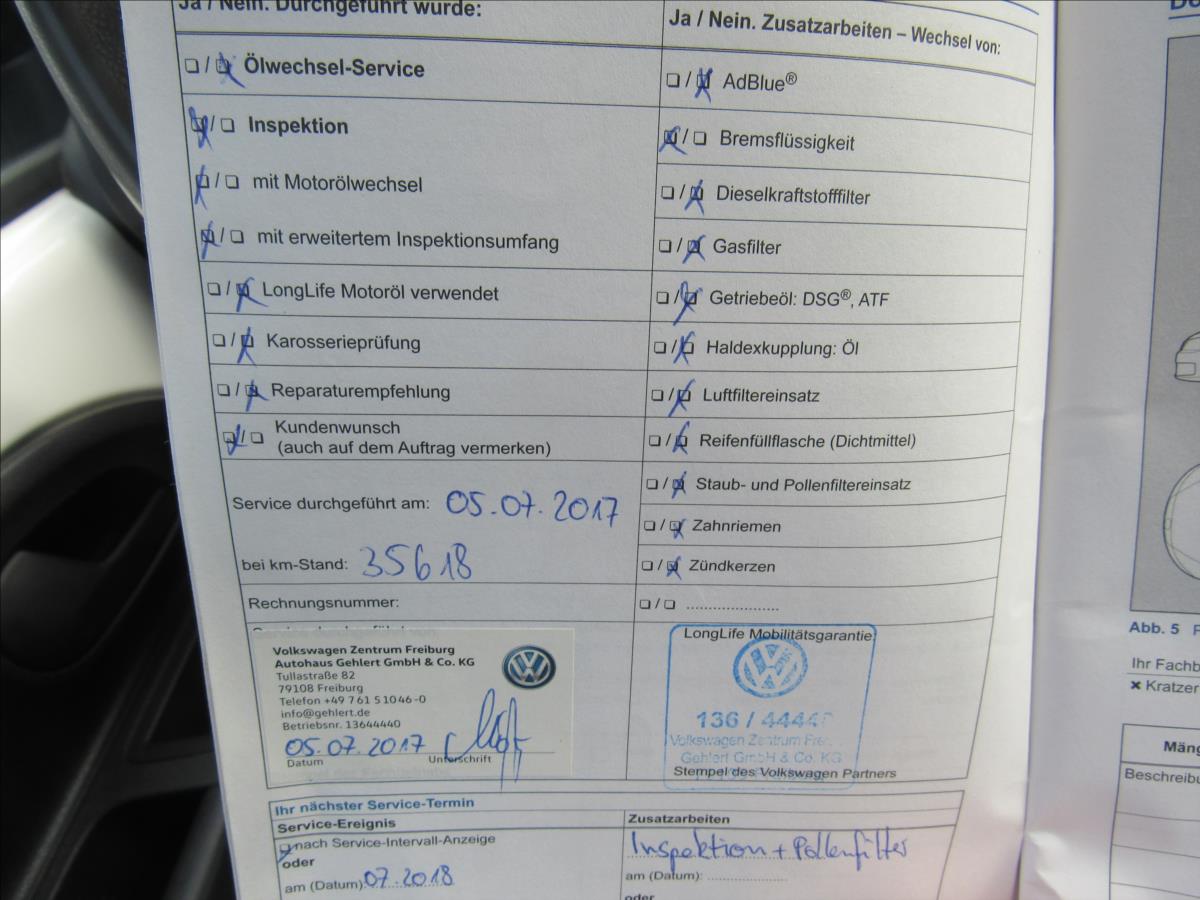 Ja / Nein. Durchgeführt wurde:
☐ / ☒ Ölwechsel-Service
☒ / ☐ Inspektion
☒ / ☐ mit Motorölwechsel
☒ / ☐ mit erweitertem Inspektionsumfang
☐ / ☒ LongLife Motoröl verwendet
☐ / ☒ Karosserieprüfung
☐ / ☒ Reparaturempfehlung
☒ / ☐ Kundenwunsch
(auch auf dem Auftrag vermerken)
Service durchgeführt am: 05.07.2017
bei km-Stand: 35618
Rechnungsnummer:
Volkswagen Zentrum Freiburg
Autohaus Gehlert GmbH & Co. KG
Tullastraße 82
79108 Freiburg
Telefon +49 7 61 5 10 46-0
info@gehlert.de
Betriebsnr. 13644440
05.07.2017
Datum Unterschrift
Ja / Nein. Zusatzarbeiten – Wechsel von:
☐ / ☒ AdBlue®
☒ / ☐ Bremsflüssigkeit
☐ / ☒ Dieselkraftstofffilter
☐ / ☒ Gasfilter
☐ / ☒ Getriebeöl: DSG®, ATF
☐ / ☒ Haldexkupplung: Öl
☐ / ☒ Luftfiltereinsatz
☐ / ☒ Reifenfüllflasche (Dichtmittel)
☐ / ☒ Staub- und Pollenfiltereinsatz
☐ / ☒ Zahnriemen
☐ / ☒ Zündkerzen
☐ / ☐ ......................
LongLife Mobilitätsgarantie
136 /
Volkswagen Zentrum
Gehlert GmbH & Co. KG
Stempel des Volkswagen Partners
Ihr nächster Service-Termin
Service-Ereignis
☒ nach Service-Intervall-Anzeige
oder
am (Datum): 07.2018
Zusatzarbeiten
Inspektion + Pollenfilter
am (Datum): ....................
oder
Abb. 5
Ihr
✖ Kratzer